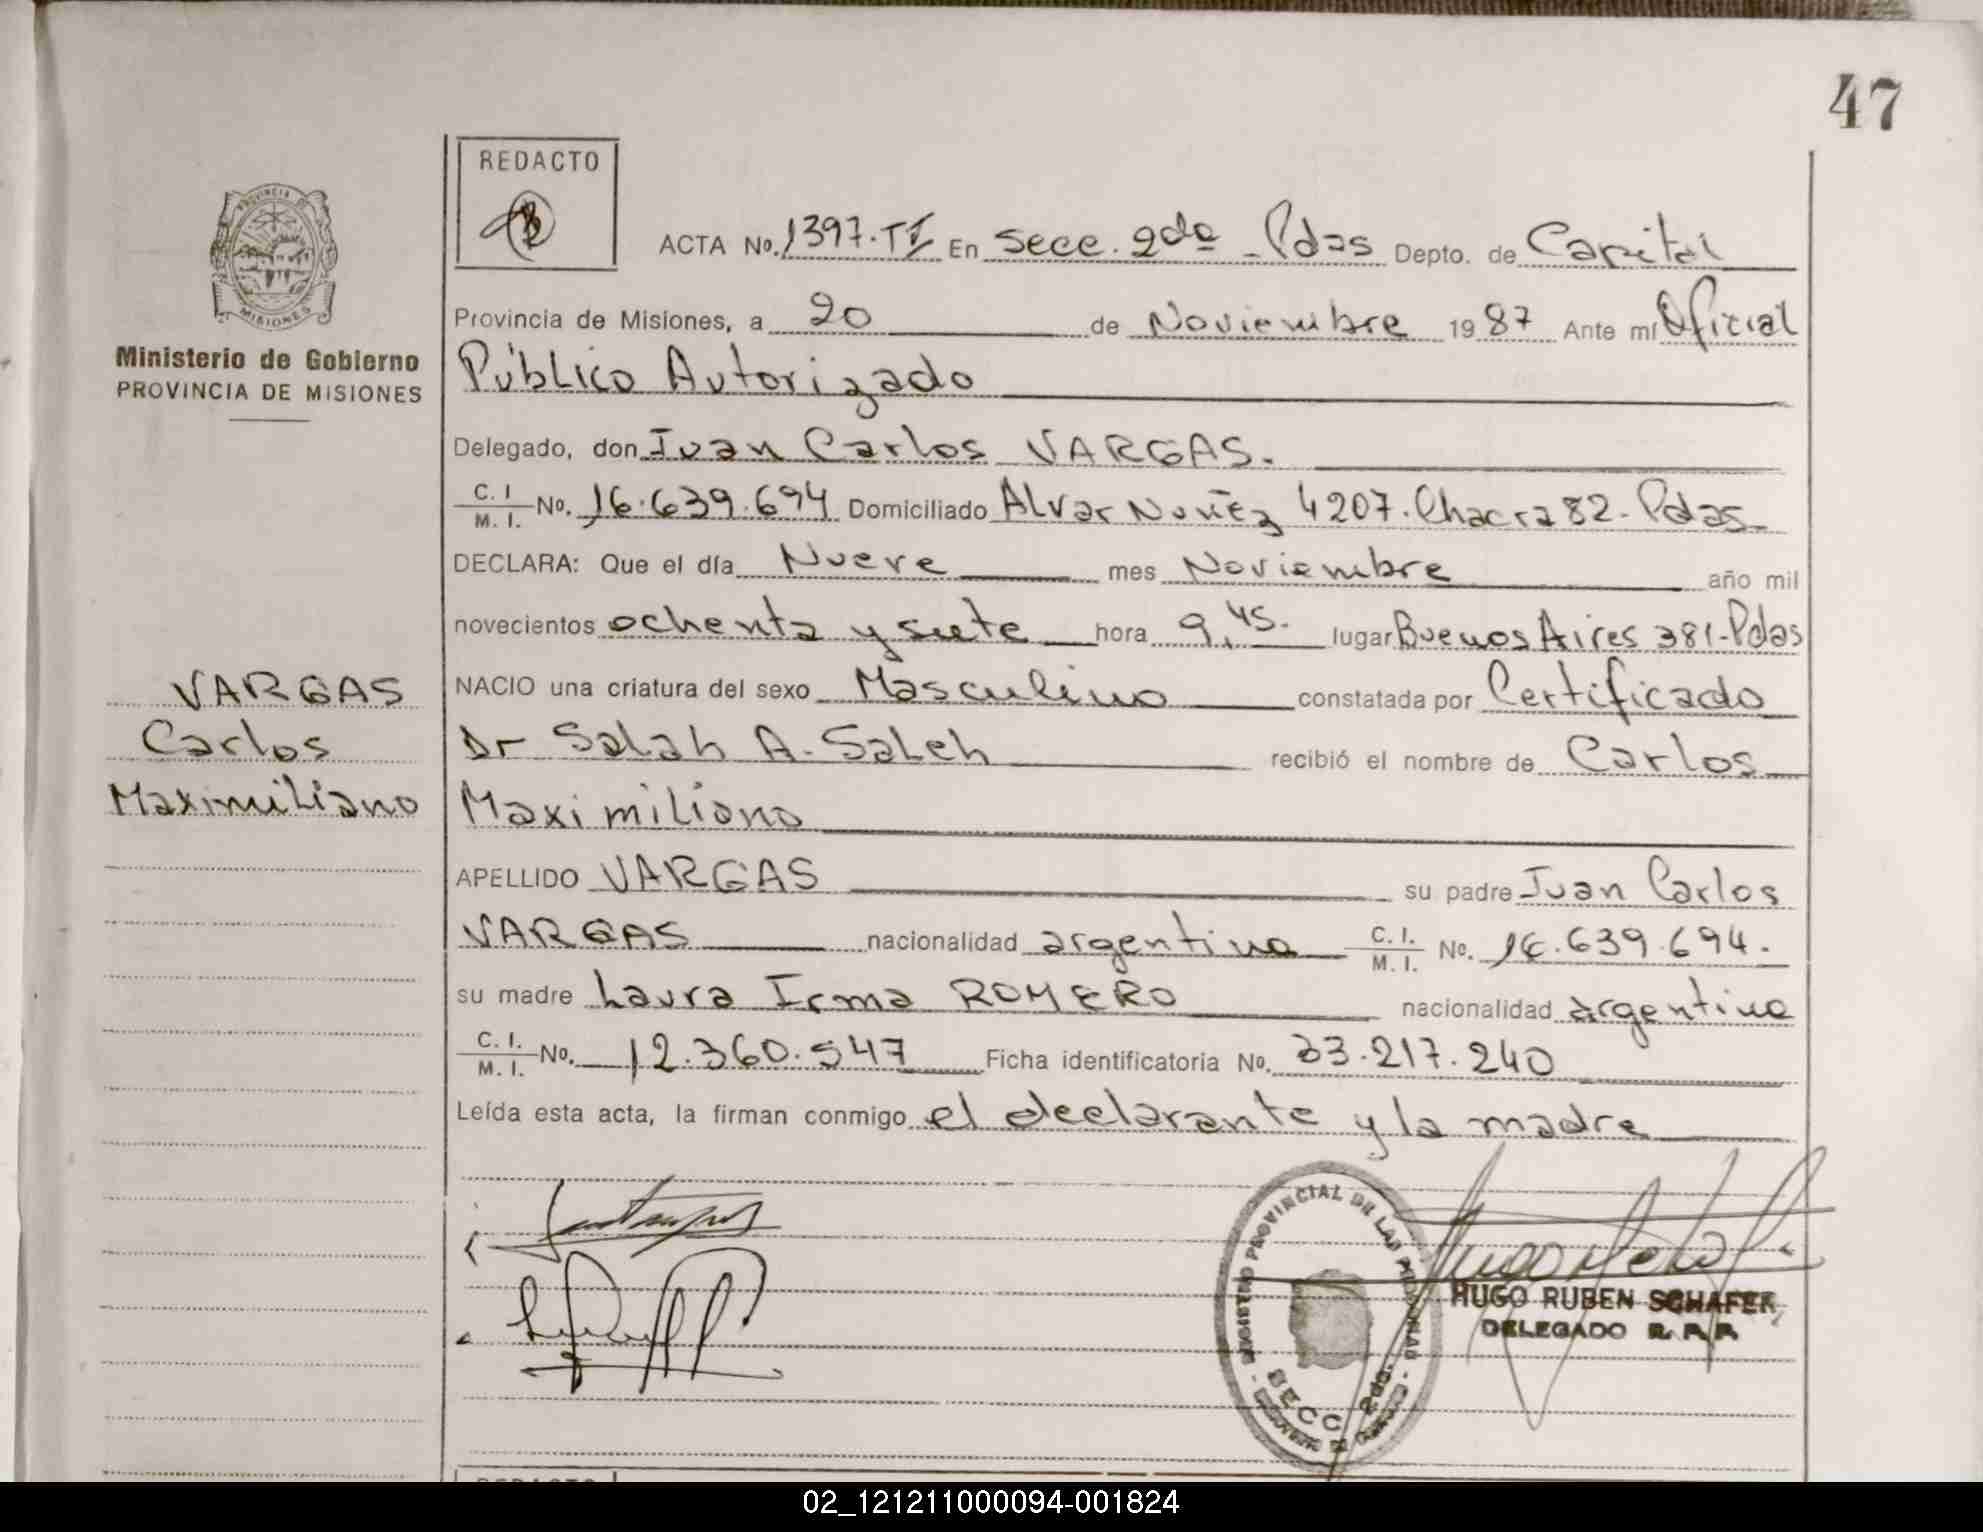 47
REDACTO
PROVINCIA DE
MISIONES
Ministerio de Gobierno
PROVINCIA DE MISIONES
ACTA No. 1397. TI En secc. 2da - Pdas Depto. de Capital
Provincia de Misiones, a 20 de Noviembre 1987 Ante mí Oficial
Público Autorizado
Delegado, don Juan Carlos VARGAS.
C. I. / M. I. No. 16.639.694 Domiciliado Alvar Nuñez 4207. Chacra 82. Pdas.
DECLARA: Que el día Nueve mes Noviembre año mil
novecientos ochenta y siete hora 9,45. lugar Buenos Aires 381-Pdas
NACIO una criatura del sexo Masculino constatada por Certificado
Dr Salah A. Saleh recibió el nombre de Carlos
Maximiliano
APELLIDO VARGAS su padre Juan Carlos
VARGAS nacionalidad argentina C. I. / M. I. No. 16.639.694.
su madre Laura Irma ROMERO nacionalidad argentina
C. I. / M. I. No. 12.360.547 Ficha identificatoria No. 33.217.240
Leída esta acta, la firman conmigo el declarante y la madre
VARGAS
Carlos
Maximiliano
REGISTRO PROVINCIAL DE LAS PERSONAS
SECC. 2da.
HUGO RUBEN SCHAFER
DELEGADO R. P. P.
REDACTO
02_121211000094-001824